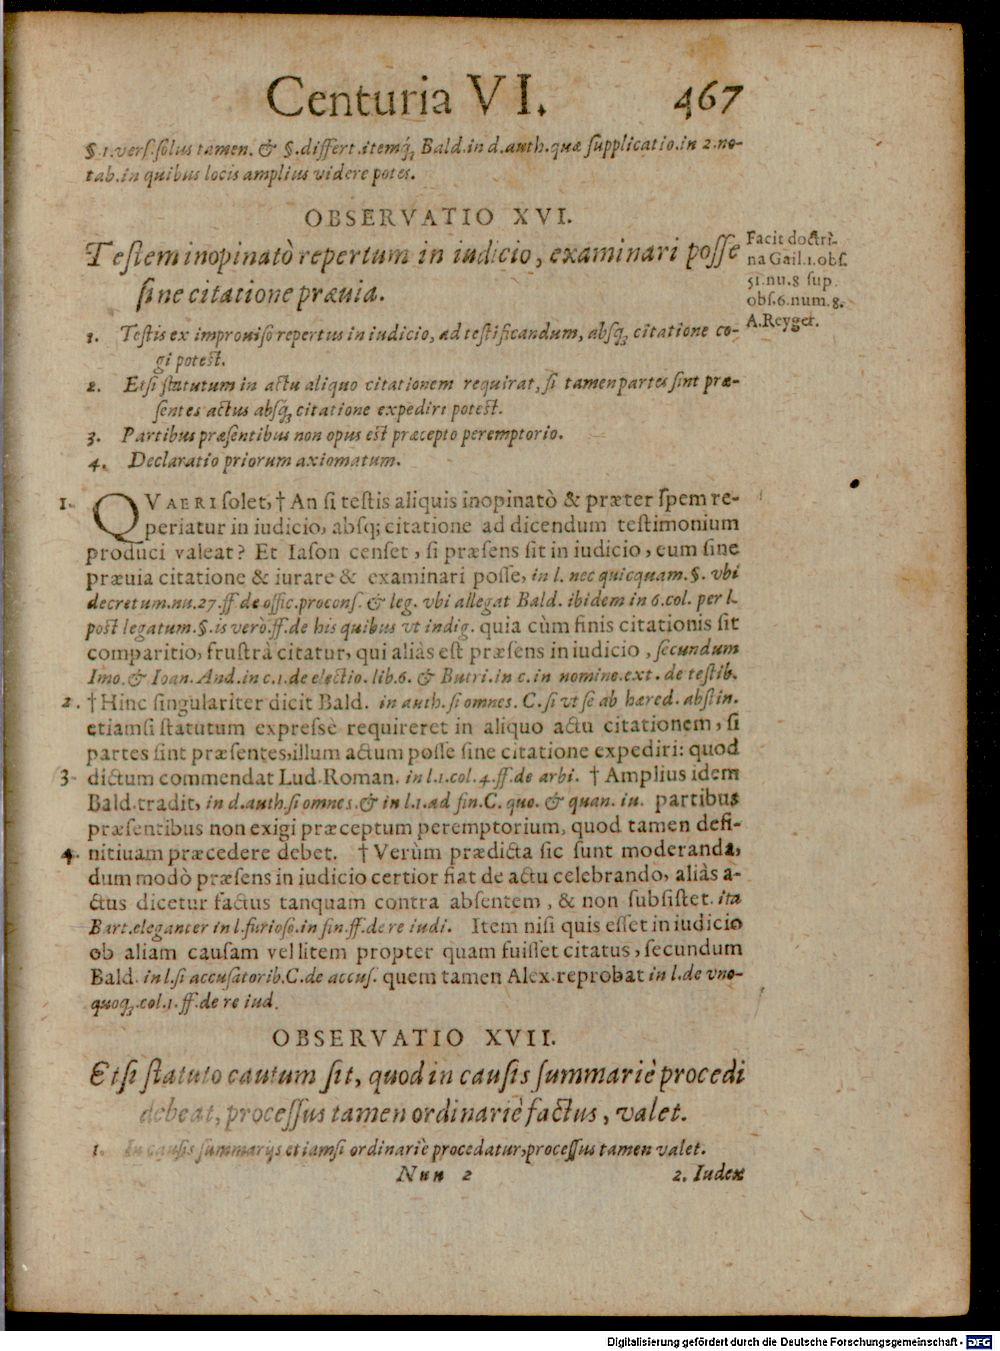 Centuria VI. 467
§.1.verſ.ſolus tamen. & §.differt.itemq́ꝫ Bald.in d.auth.quæ ſupplicatio.in 2.no-
tab.in quibus locis amplius videre potes.
OBSERVATIO XVI.
Teſtem inopinatò repertum in iudicio, examinari poſſe
ſine citatione præuia.
Facit doctri-
na Gail.1.obſ.
51.nu.8 ſup.
obſ.6.num.8.
A.Reyger.
1. Teſtis ex improuiſo repertus in iudicio, ad teſtificandum, abſqꝫ citatione co-
gi poteſt.
2. Etſi ſtatutum in actu aliquo citationem requirat, ſi tamen partes ſint præ-
ſentes actus abſqꝫ citatione expediri poteſt.
3. Partibus præſentibus non opus eſt præcepto peremptorio.
4. Declaratio priorum axiomatum.
1. QVAERI ſolet, † An ſi teſtis aliquis inopinatò & præter ſpem re-
periatur in iudicio, abſq; citatione ad dicendum teſtimonium
produci valeat? Et Iaſon cenſet, ſi præſens ſit in iudicio, eum ſine
præuia citatione & iurare & examinari poſſe, in l. nec quicquam. §. vbi
decretum.nu.27.ff.de offic.proconſ. & leg. vbi allegat Bald. ibidem in 6.col. per l.
poſt legatum.§.is verò.ff.de his quibus vt indig. quia cùm finis citationis ſit
comparitio, fruſtrà citatur, qui aliàs eſt præſens in iudicio, ſecundum
Imo. & Ioan. And.in c.1.de electio. lib.6. & Butri.in c. in nomine.ext. de teſtib.
2. † Hinc ſingulariter dicit Bald. in auth. ſi omnes. C. ſi vt ſe ab hæred. abſtin.
etiamſi ſtatutum expreſsè requireret in aliquo actu citationem, ſi
partes ſint præſentes, illum actum poſſe ſine citatione expediri: quod
3- dictum commendat Lud.Roman. in l.1.col.4.ff.de arbi. † Amplius idem
Bald.tradit, in d.auth.ſi omnes.& in l.1.ad fin.C. quo. & quan. iu. partibus
præſentibus non exigi præceptum peremptorium, quod tamen defi-
4. nitiuam præcedere debet. † Verùm prædicta ſic ſunt moderanda,
dum modò præſens in iudicio certior fiat de actu celebrando, aliàs a-
ctus dicetur factus tanquam contra abſentem, & non ſubſiſtet. ita
Bart.eleganter in l.furioſo.in fin.ff.de re iudi. Item niſi quis eſſet in iudicio
ob aliam cauſam vel litem propter quam fuiſſet citatus, ſecundum
Bald. in l.ſi accuſatorib.C.de accuſ. quem tamen Alex.reprobat in l.de vno-
quoqꝫ.col.1.ff.de re iud.
OBSERVATIO XVII.
Etſi ſtatuto cautum ſit, quod in cauſis ſummariè procedi
debeat, proceſſus tamen ordinariè factus, valet.
1. In cauſis ſummarijs etiamſi ordinariè procedatur, proceſſus tamen valet.
Nnn 2 2. Iudex
Digitalisierung gefördert durch die Deutsche Forschungsgemeinschaft - DFG